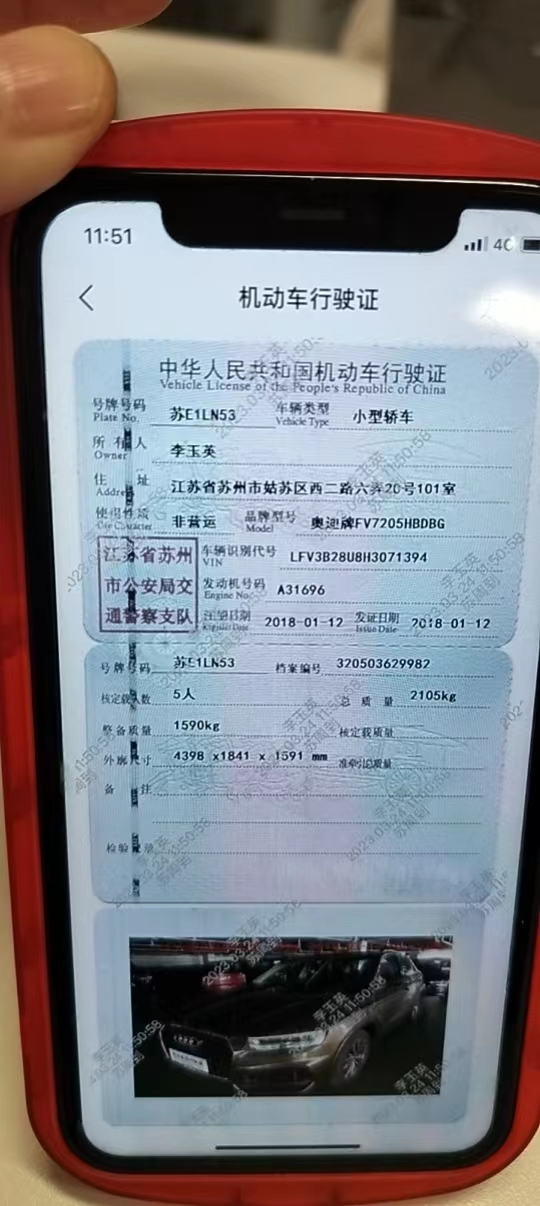 11:51
4G
机动车行驶证
中华人民共和国机动车行驶证
Vehicle License of the People's Republic of China
号牌号码 苏E1LN53 车辆类型 小型轿车
Plate No. Vehicle Type
所有人 李玉英
Owner
住址 江苏省苏州市姑苏区西二路六弄20号101室
Address
使用性质 非营运 品牌型号 奥迪牌FV7205HBDBG
Use Character Model
江苏省苏州 车辆识别代号 LFV3B28U8H3071394
VIN
市公安局交 发动机号码 A31696
Engine No.
通警察支队 注册日期 2018-01-12 发证日期 2018-01-12
Register Date Issue Date
号牌号码 苏E1LN53 档案编号 320503629982
核定载人数 5人 总质量 2105kg
整备质量 1590kg 核定载质量
外廓尺寸 4398 x1841 x 1591 mm 准牵引总质量
备注
检验记录
李玉英
2023.03.24 11:50:58
苏周到